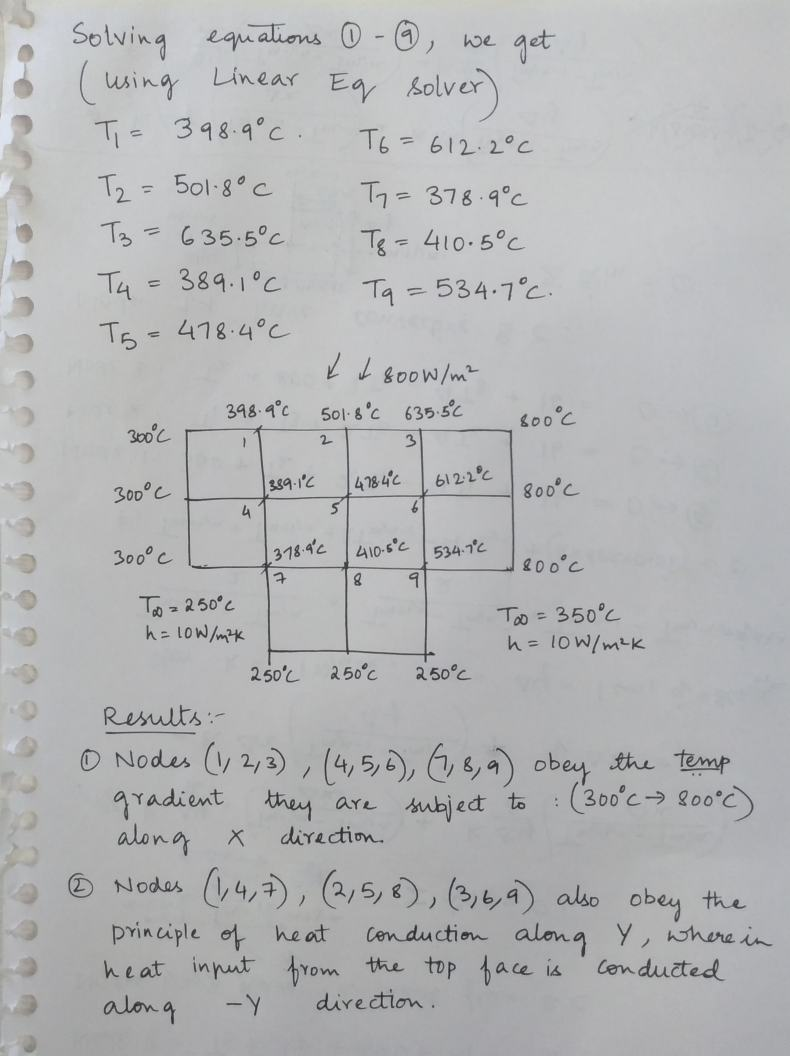 Solving equations ① - ⑨, we get
(using Linear Eq solver)
T1 = 398.9°C.
T2 = 501.8°C
T3 = 635.5°C
T4 = 389.1°C
T5 = 478.4°C
T6 = 612.2°C
T7 = 378.9°C
T8 = 410.5°C
T9 = 534.7°C.
↓ ↓ 800W/m²
398.9°C 501.8°C 635.5°C
300°C 1 2 3 800°C
389.1°C 478.4°C 612.2°C
300°C 4 5 6 800°C
378.9°C 410.5°C 534.7°C
300°C 7 8 9 800°C
T∞ = 250°C
h = 10W/m²K
T∞ = 350°C
h = 10W/m²K
250°C 250°C 250°C
Results:-
① Nodes (1,2,3), (4,5,6), (7,8,9) obey the temp
gradient they are subject to : (300°C → 800°C)
along X direction.
② Nodes (1,4,7), (2,5,8), (3,6,9) also obey the
principle of heat conduction along Y, where in
heat input from the top face is conducted
along -Y direction.